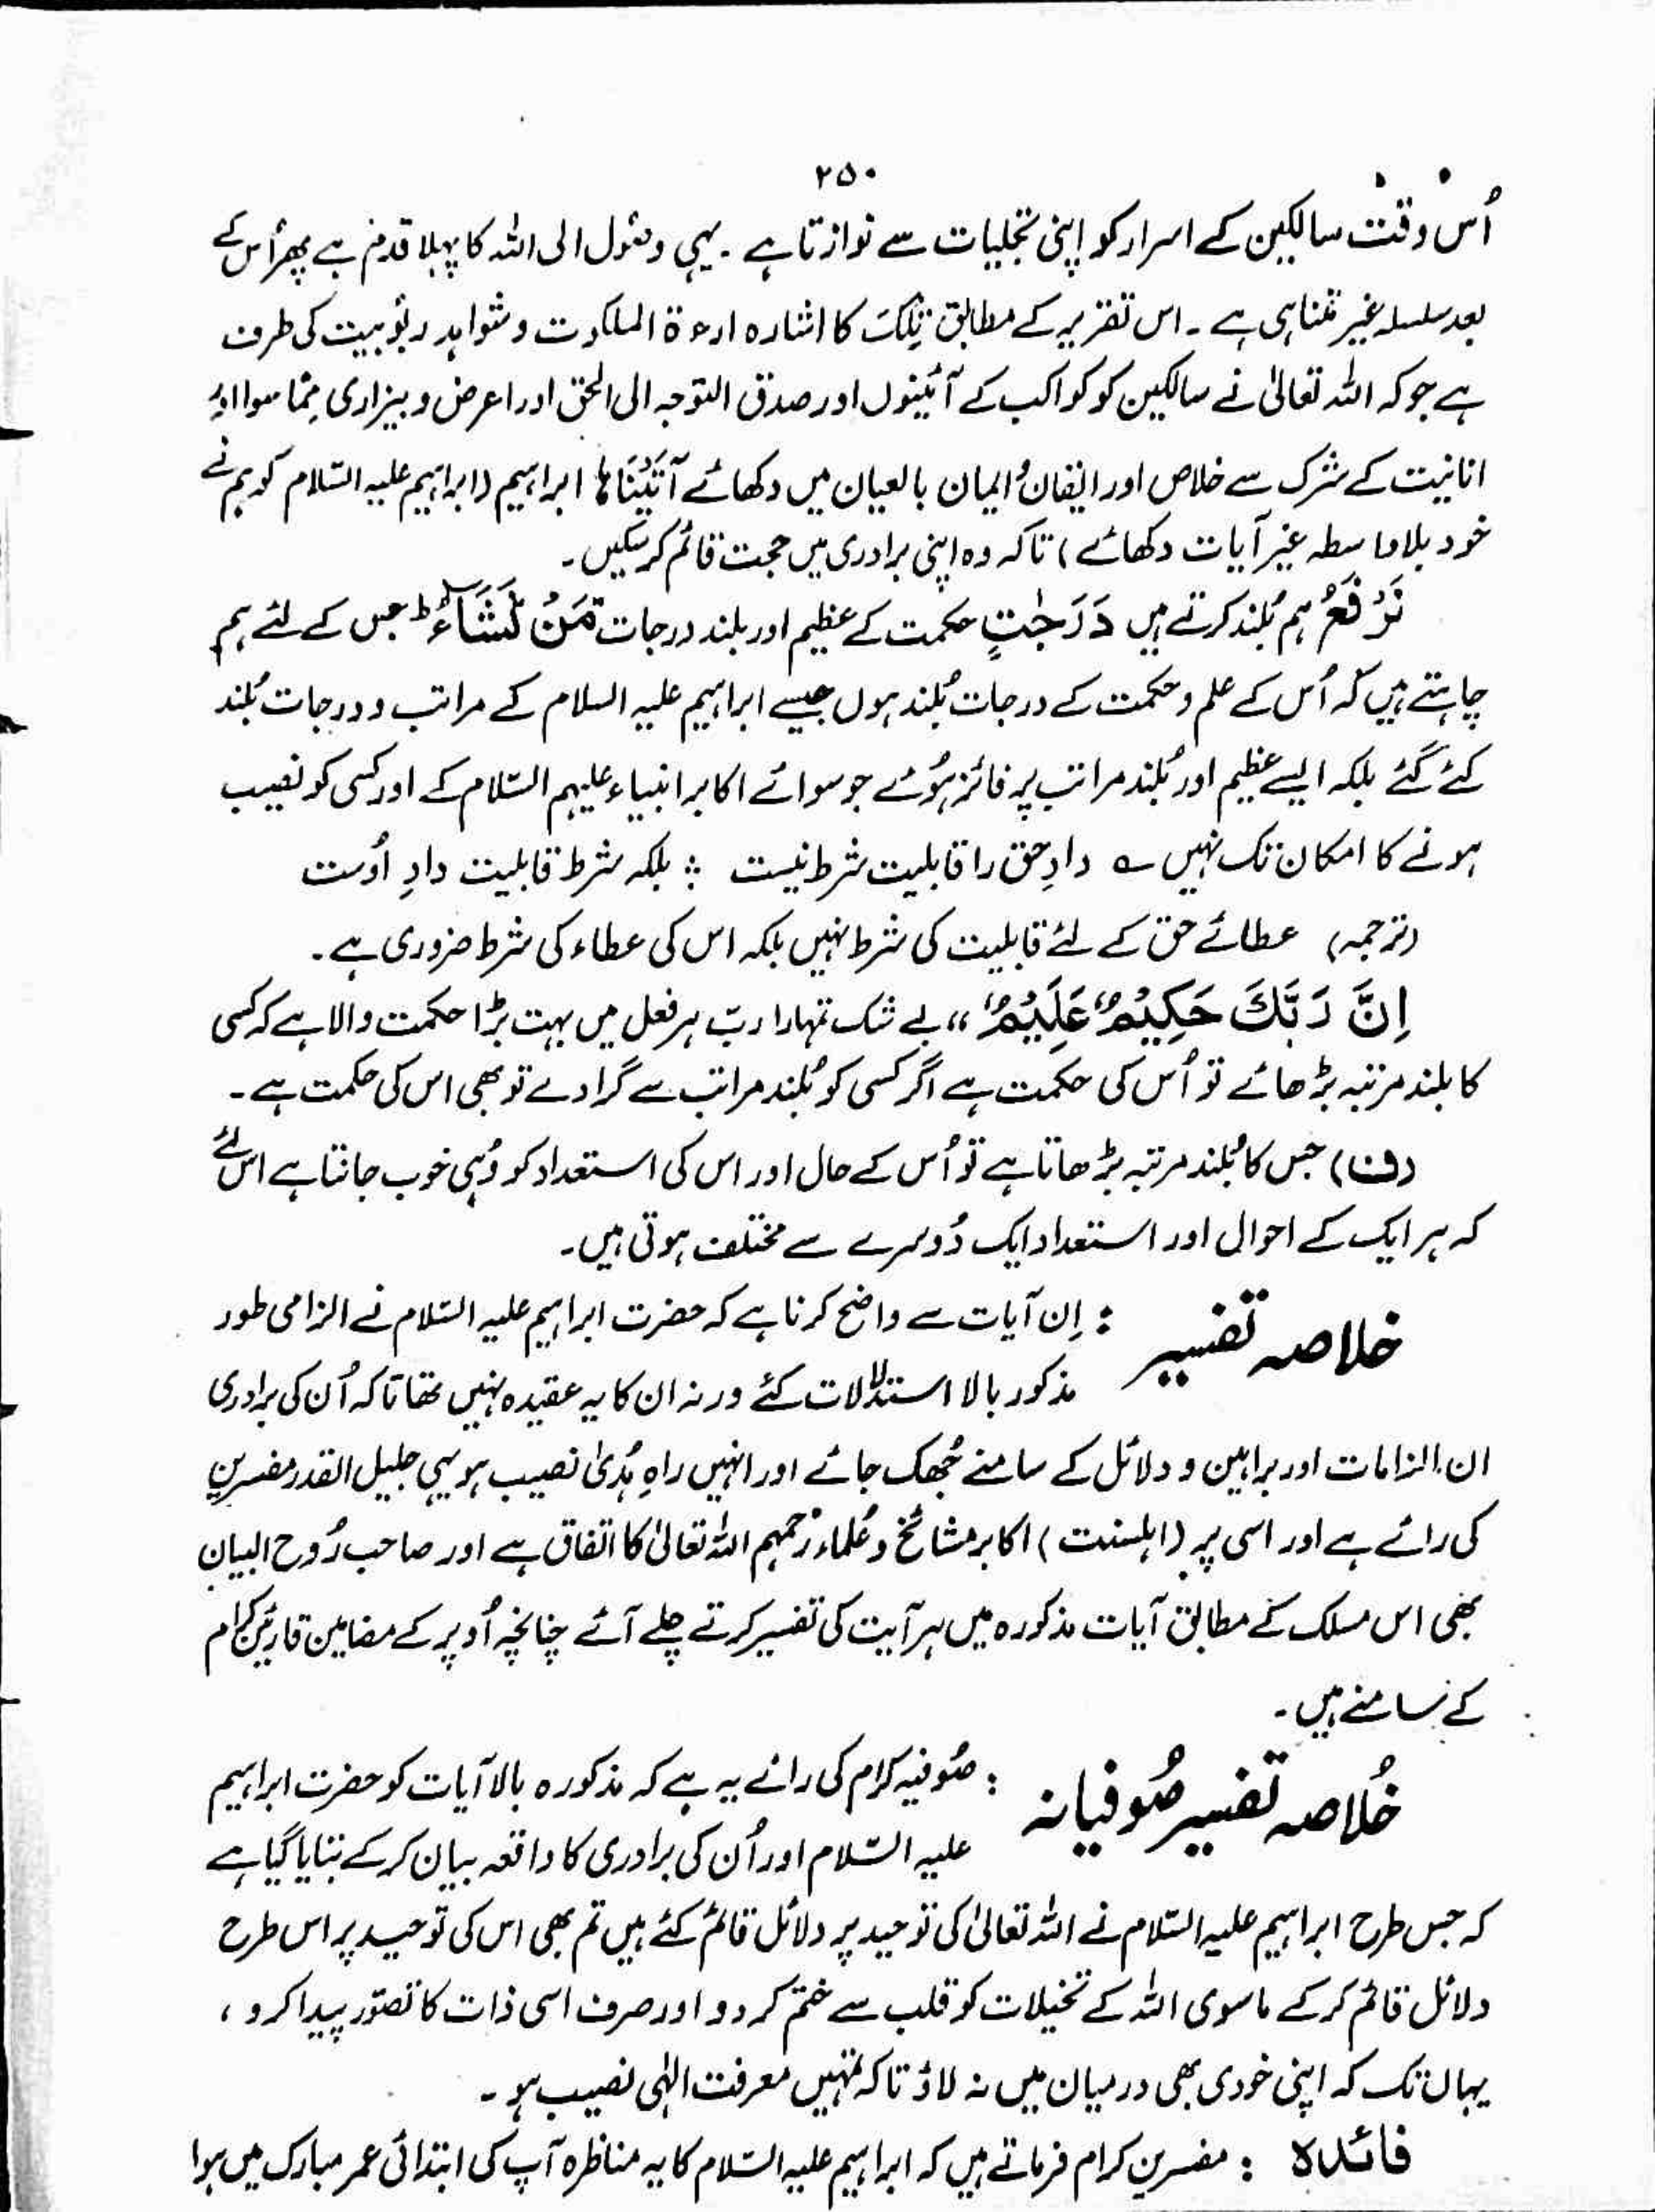 ۲۵۰
اُس وقت سالکین کے اسرار کو اپنی تجلیات سے نوازتا ہے ۔ یہی وصول الی اللہ کا پہلا قدم ہے پھر اُس کے
بعد سلسلہ غیر متناہی ہے ۔ اس تقریر کے مطابق تِلْکَ کا اشارہ اراءۃ الملکوت و شواہد ربُوبیت کی طرف
ہے جو کہ اللہ تعالیٰ نے سالکین کو کواکب کے آئینوں اور صدق التوجہ الی الحق اور اعرض و بیزاری مِمّا سوا اور
انانیت کے شرک سے خلاص اور ایقان و ایمان بالعیان میں دکھائے آتَیْنَاہَا ابراہیم (ابراہیم علیہ السّلام کو ہم نے
خود بلا واسطہ غیر آیات دکھائے) تاکہ وہ اپنی برادری میں حجت قائم کر سکیں ۔
نَرْفَعُ ہم بُلند کرتے ہیں دَرَجٰتٍ حکمت کے عظیم اور بلند درجات مَّنْ نَّشَآءُ ط جس کے لئے ہم
چاہتے ہیں کہ اُس کے علم و حکمت کے درجات بُلند ہوں جیسے ابراہیم علیہ السلام کے مراتب و درجات بُلند
کئے گئے بلکہ ایسے عظیم اور بُلند مراتب پر فائز ہُوئے جو سوائے اکابر انبیاء علیہم السّلام کے اور کسی کو نصیب
ہونے کا امکان تک نہیں ؎ دادِ حق را قابلیت شرط نیست ؞ بلکہ شرط قابلیت دادِ اُوست
(ترجمہ) عطائے حق کے لئے قابلیت کی شرط نہیں بلکہ اس کی عطاء کی شرط ضروری ہے ۔
اِنَّ رَبَّکَ حَکِیْمٌ عَلِیْمٌ ،، بے شک تمہارا ربّ ہر فعل میں بہت بڑا حکمت والا ہے کہ کسی
کا بلند مرتبہ بڑھائے تو اُس کی حکمت ہے اگر کسی کو بُلند مراتب سے گرا دے تو بھی اس کی حکمت ہے ۔
(ف) جس کا بُلند مرتبہ بڑھاتا ہے تو اُس کے حال اور اس کی استعداد کو وُہی خوب جانتا ہے اس لئے
کہ ہر ایک کے احوال اور استعداد ایک دُوسرے سے مختلف ہوتی ہیں ۔
خلاصہ تفسیر : اِن آیات سے واضح کرنا ہے کہ حضرت ابراہیم علیہ السّلام نے الزامی طور
مذکور بالا استدلالات کئے ورنہ ان کا یہ عقیدہ نہیں تھا تاکہ اُن کی برادری
ان الزامات اور براہین و دلائل کے سامنے جُھک جائے اور انہیں راہِ ہُدیٰ نصیب ہو یہی جلیل القدر مفسرین
کی رائے ہے اور اسی پر (اہلسنت) اکابر مشائخ و عُلماء رحمہم اللہ تعالیٰ کا اتفاق ہے اور صاحب رُوح البیان
بھی اس مسلک کے مطابق آیات مذکورہ میں ہر آیت کی تفسیر کرتے چلے آئے چنانچہ اُوپر کے مضامین قارئین کرام
کے سامنے ہیں ۔
خُلاصہ تفسیر صُوفیانہ : صُوفیہ کرام کی رائے یہ ہے کہ مذکورہ بالا آیات کو حضرت ابراہیم
علیہ السّلام اور اُن کی برادری کا واقعہ بیان کر کے بتایا گیا ہے
کہ جس طرح ابراہیم علیہ السّلام نے اللہ تعالیٰ کی توحید پر دلائل قائم کئے ہیں تم بھی اس کی توحید پر اس طرح
دلائل قائم کر کے ماسوی اللہ کے تخیلات کو قلب سے ختم کر دو اور صرف اسی ذات کا تصوّر پیدا کرو ،
یہاں تک کہ اپنی خودی بھی درمیان میں نہ لاؤ تاکہ تمہیں معرفت الٰہی نصیب ہو ۔
فائدہ : مفسرین کرام فرماتے ہیں کہ ابراہیم علیہ السّلام کا یہ مناظرہ آپ کی ابتدائی عمر مبارک میں ہوا